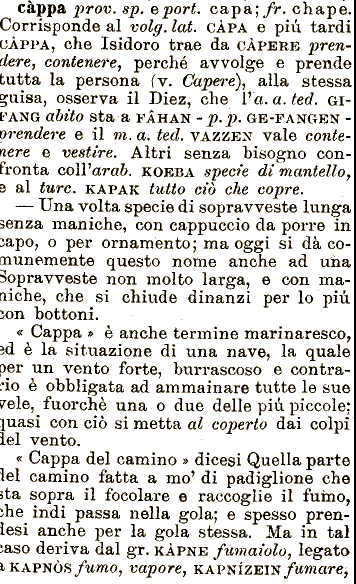 càppa prov. sp. e port. capa; fr. chape.
Corrisponde al volg. lat. CÀPA e più tardi
CÀPPA, che Isidoro trae da CÀPERE pren-
dere, contenere, perché avvolge e prende
tutta la persona (v. Capere), alla stessa
guisa, osserva il Diez, che l'a. a. ted. GI-
FANG abito sta a FÂHAN - p. p. GE-FANGEN -
prendere e il m. a. ted. VAZZEN vale conte-
nere e vestire. Altri senza bisogno con-
fronta coll'arab. KOEBA specie di mantello,
e al turc. KAPAK tutto ciò che copre.
— Una volta specie di sopravveste lunga
senza maniche, con cappuccio da porre in
capo, o per ornamento; ma oggi si dà co-
munemente questo nome anche ad una
Sopravveste non molto larga, e con ma-
niche, che si chiude dinanzi per lo più
con bottoni.
« Cappa » è anche termine marinaresco,
ed è la situazione di una nave, la quale
per un vento forte, burrascoso e contra-
rio è obbligata ad ammainare tutte le sue
vele, fuorchè una o due delle più piccole;
quasi con ciò si metta al coperto dai colpi
del vento.
« Cappa del camino » dicesi Quella parte
del camino fatta a mo' di padiglione che
sta sopra il focolare e raccoglie il fumo,
che indi passa nella gola; e spesso pren-
desi anche per la gola stessa. Ma in tal
caso deriva dal gr. KÀPNE fumaiolo, legato
a KAPNÒS fumo, vapore, KAPNÍZEIN fumare,